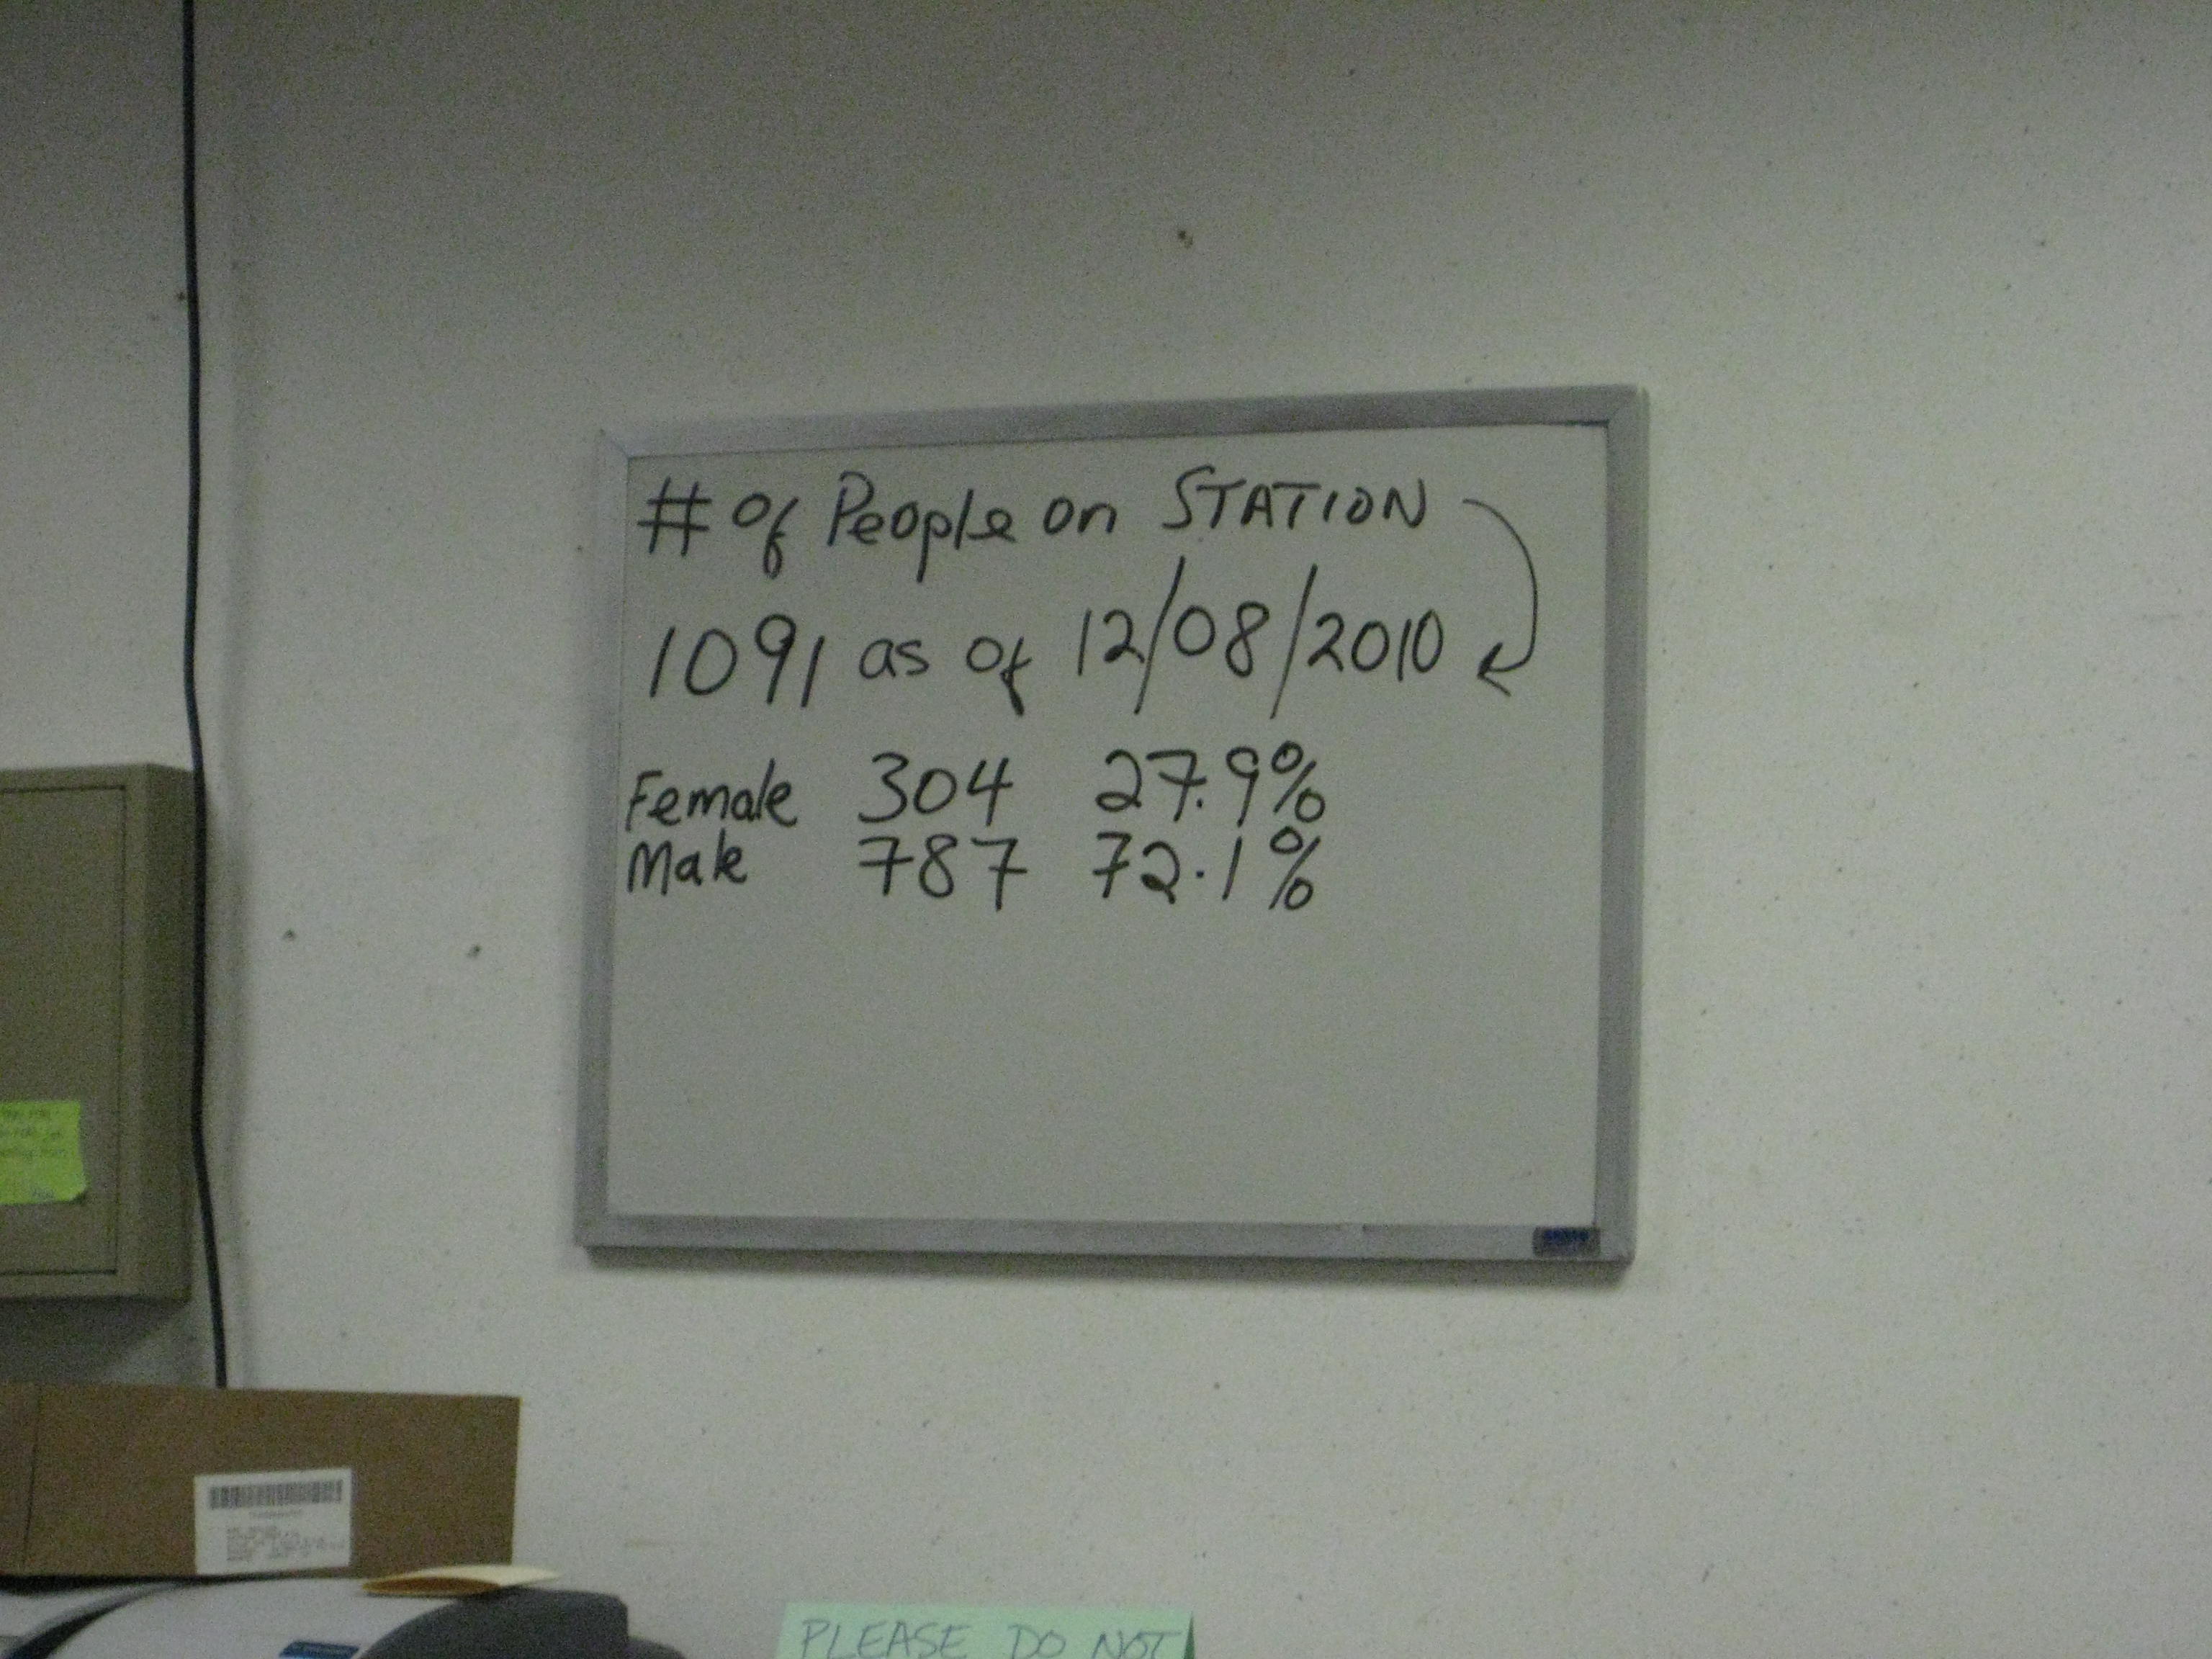 # of People on STATION
1091 as of 12/08/2010
Female 304 27.9%
Male 787 72.1%
PLEASE DO NOT